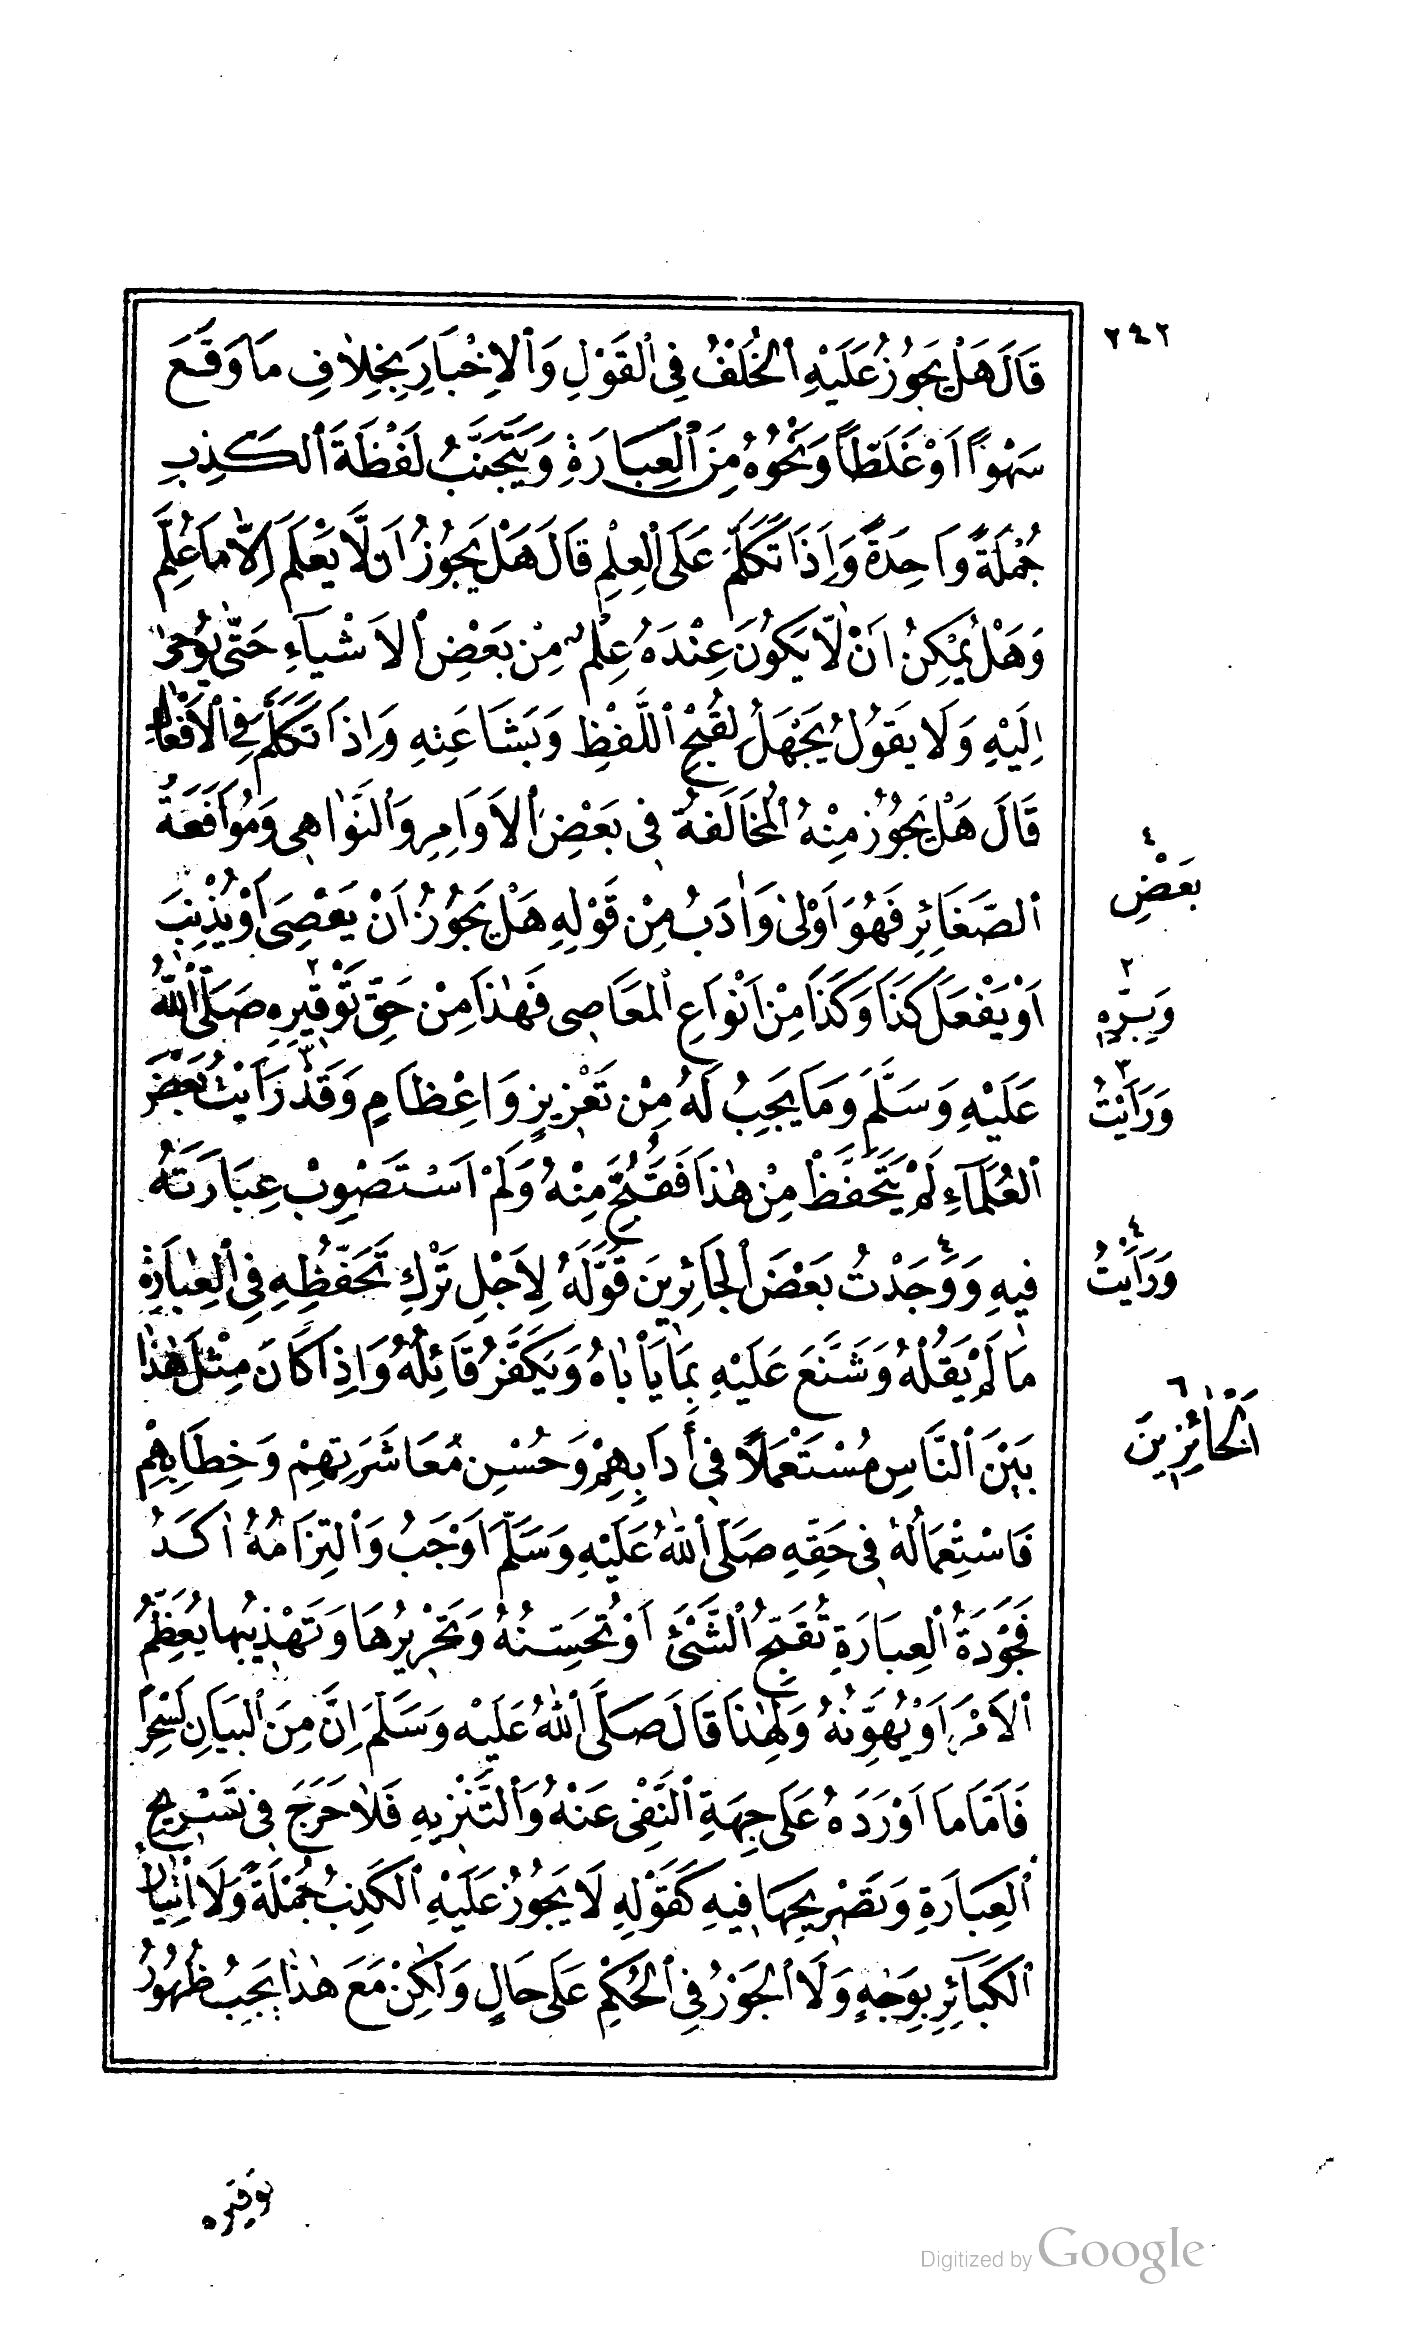 ٢٤٢
قَالَ هَلْ يَجُوزُ عَلَيْهِ ٱلْخُلْفُ فِى ٱلْقَوْلِ وَٱلْاِخْبَارِ بِخِلَافِ مَا وَقَعَ
سَهْوًا اَوْ غَلَطًا وَنَحْوُهُ مِنَ ٱلْعِبَارَةِ وَيَتَجَنَّبُ لَفْظَةَ ٱلْكَذِبِ
جُمْلَةً وَاحِدَةً وَاِذَا تَكَلَّمَ عَلَى ٱلْعِلْمِ قَالَ هَلْ يَجُوزُ اَنْ لَّا يَعْلَمَ اِلَّا مَا عُلِّمَ
وَهَلْ يُمْكِنُ اَنْ لَّا يَكُونَ عِنْدَهُ عِلْمٌ مِنْ بَعْضِ ٱلْاَشْيَآءِ حَتّٰى يُوحٰى
اِلَيْهِ وَلَا يَقُولُ يَجْهَلُ لِقُبْحِ ٱللَّفْظِ وَبَشَاعَتِهِ وَاِذَا تَكَلَّمَ فِى ٱلْاَفْعَالِ
قَالَ هَلْ يَجُوزُ مِنْهُ ٱلْمُخَالَفَةُ فِى بَعْضِ ٱلْاَوَامِرِ وَٱلنَّوَاهِى وَمُوَاقَعَةُ
ٱلصَّغَائِرِ فَهُوَ اَوْلٰى وَاٰدَبُ مِنْ قَوْلِهِ هَلْ يَجُوزُ اَنْ يَعْصِىَ اَوْ يُذْنِبَ
اَوْ يَفْعَلَ كَذَا وَكَذَا مِنْ اَنْوَاعِ ٱلْمَعَاصِى فَهٰذَا مِنْ حَقِّ تَوْقِيرِهِ ٢ صَلَّى ٱللّٰهُ
عَلَيْهِ وَسَلَّمَ وَمَا يَجِبُ لَهُ مِنْ تَعْزِيزٍ وَاِعْظَامٍ وَقَدْ ٣ رَاَيْتُ بَعْضَ
ٱلْعُلَمَآءِ لَمْ يَتَحَفَّظْ مِنْ هٰذَا فَقَبُحَ مِنْهُ وَلَمْ اَسْتَصْوِبْ عِبَارَتَهُ
فِيهِ وَوَجَدْتُ ٤ بَعْضَ ٱلْجَائِرِينَ قَوَّلَهُ لِاَجْلِ تَرْكِ تَحَفُّظِهِ فِى ٱلْعِبَارَةِ
مَا لَمْ يَقُلْهُ وَشَنَّعَ عَلَيْهِ بِمَا يَاْبَاهُ وَيُكَفَّرُ قَائِلُهُ وَاِذَا كَانَ مِثْلُ هٰذَا
بَيْنَ ٱلنَّاسِ مُسْتَعْمَلًا فِى أٰدَابِهِمْ وَحُسْنِ مُعَاشَرَتِهِمْ وَخِطَابِهِمْ
فَاسْتِعْمَالُهُ فِى حَقِّهِ صَلَّى ٱللّٰهُ عَلَيْهِ وَسَلَّمَ اَوْجَبُ وَٱلْتِزَامُهُ اٰكَدُ
فَجَوْدَةُ ٱلْعِبَارَةِ تُقَبِّحُ ٱلشَّىْءَ اَوْ تُحَسِّنُهُ وَتَحْرِيرُهَا وَتَهْذِيبُهَا يُعَظِّمُ
ٱلْاَمْرَ اَوْ يُهَوِّنُهُ وَلِهٰذَا قَالَ صَلَّى ٱللّٰهُ عَلَيْهِ وَسَلَّمَ اِنَّ مِنَ ٱلْبَيَانِ لَسِحْرًا
فَاَمَّا مَا اَوْرَدَهُ عَلَى جِهَةِ ٱلنَّفْىِ عَنْهُ وَٱلتَّنْزِيهِ فَلَا حَرَجَ فِى تَسْرِيحِ
ٱلْعِبَارَةِ وَتَصْرِيحِهَا فِيهِ كَقَوْلِهِ لَا يَجُوزُ عَلَيْهِ ٱلْكَذِبُ جُمْلَةً وَلَا اِتْيَانُ
ٱلْكَبَآئِرِ بِوَجْهٍ وَلَا ٱلْجَوْرُ فِى ٱلْحُكْمِ عَلَى حَالٍ وَلٰكِنْ مَعَ هٰذَا يَجِبُ ظُهُورُ
٤
بَعْضِ
٢
وَبِرِّهِ
٣
وَرَاَيْتُ
٤
وَرَاَيْتُ
٦
ٱلْحَائِزِينَ
توقيره
Digitized by Google